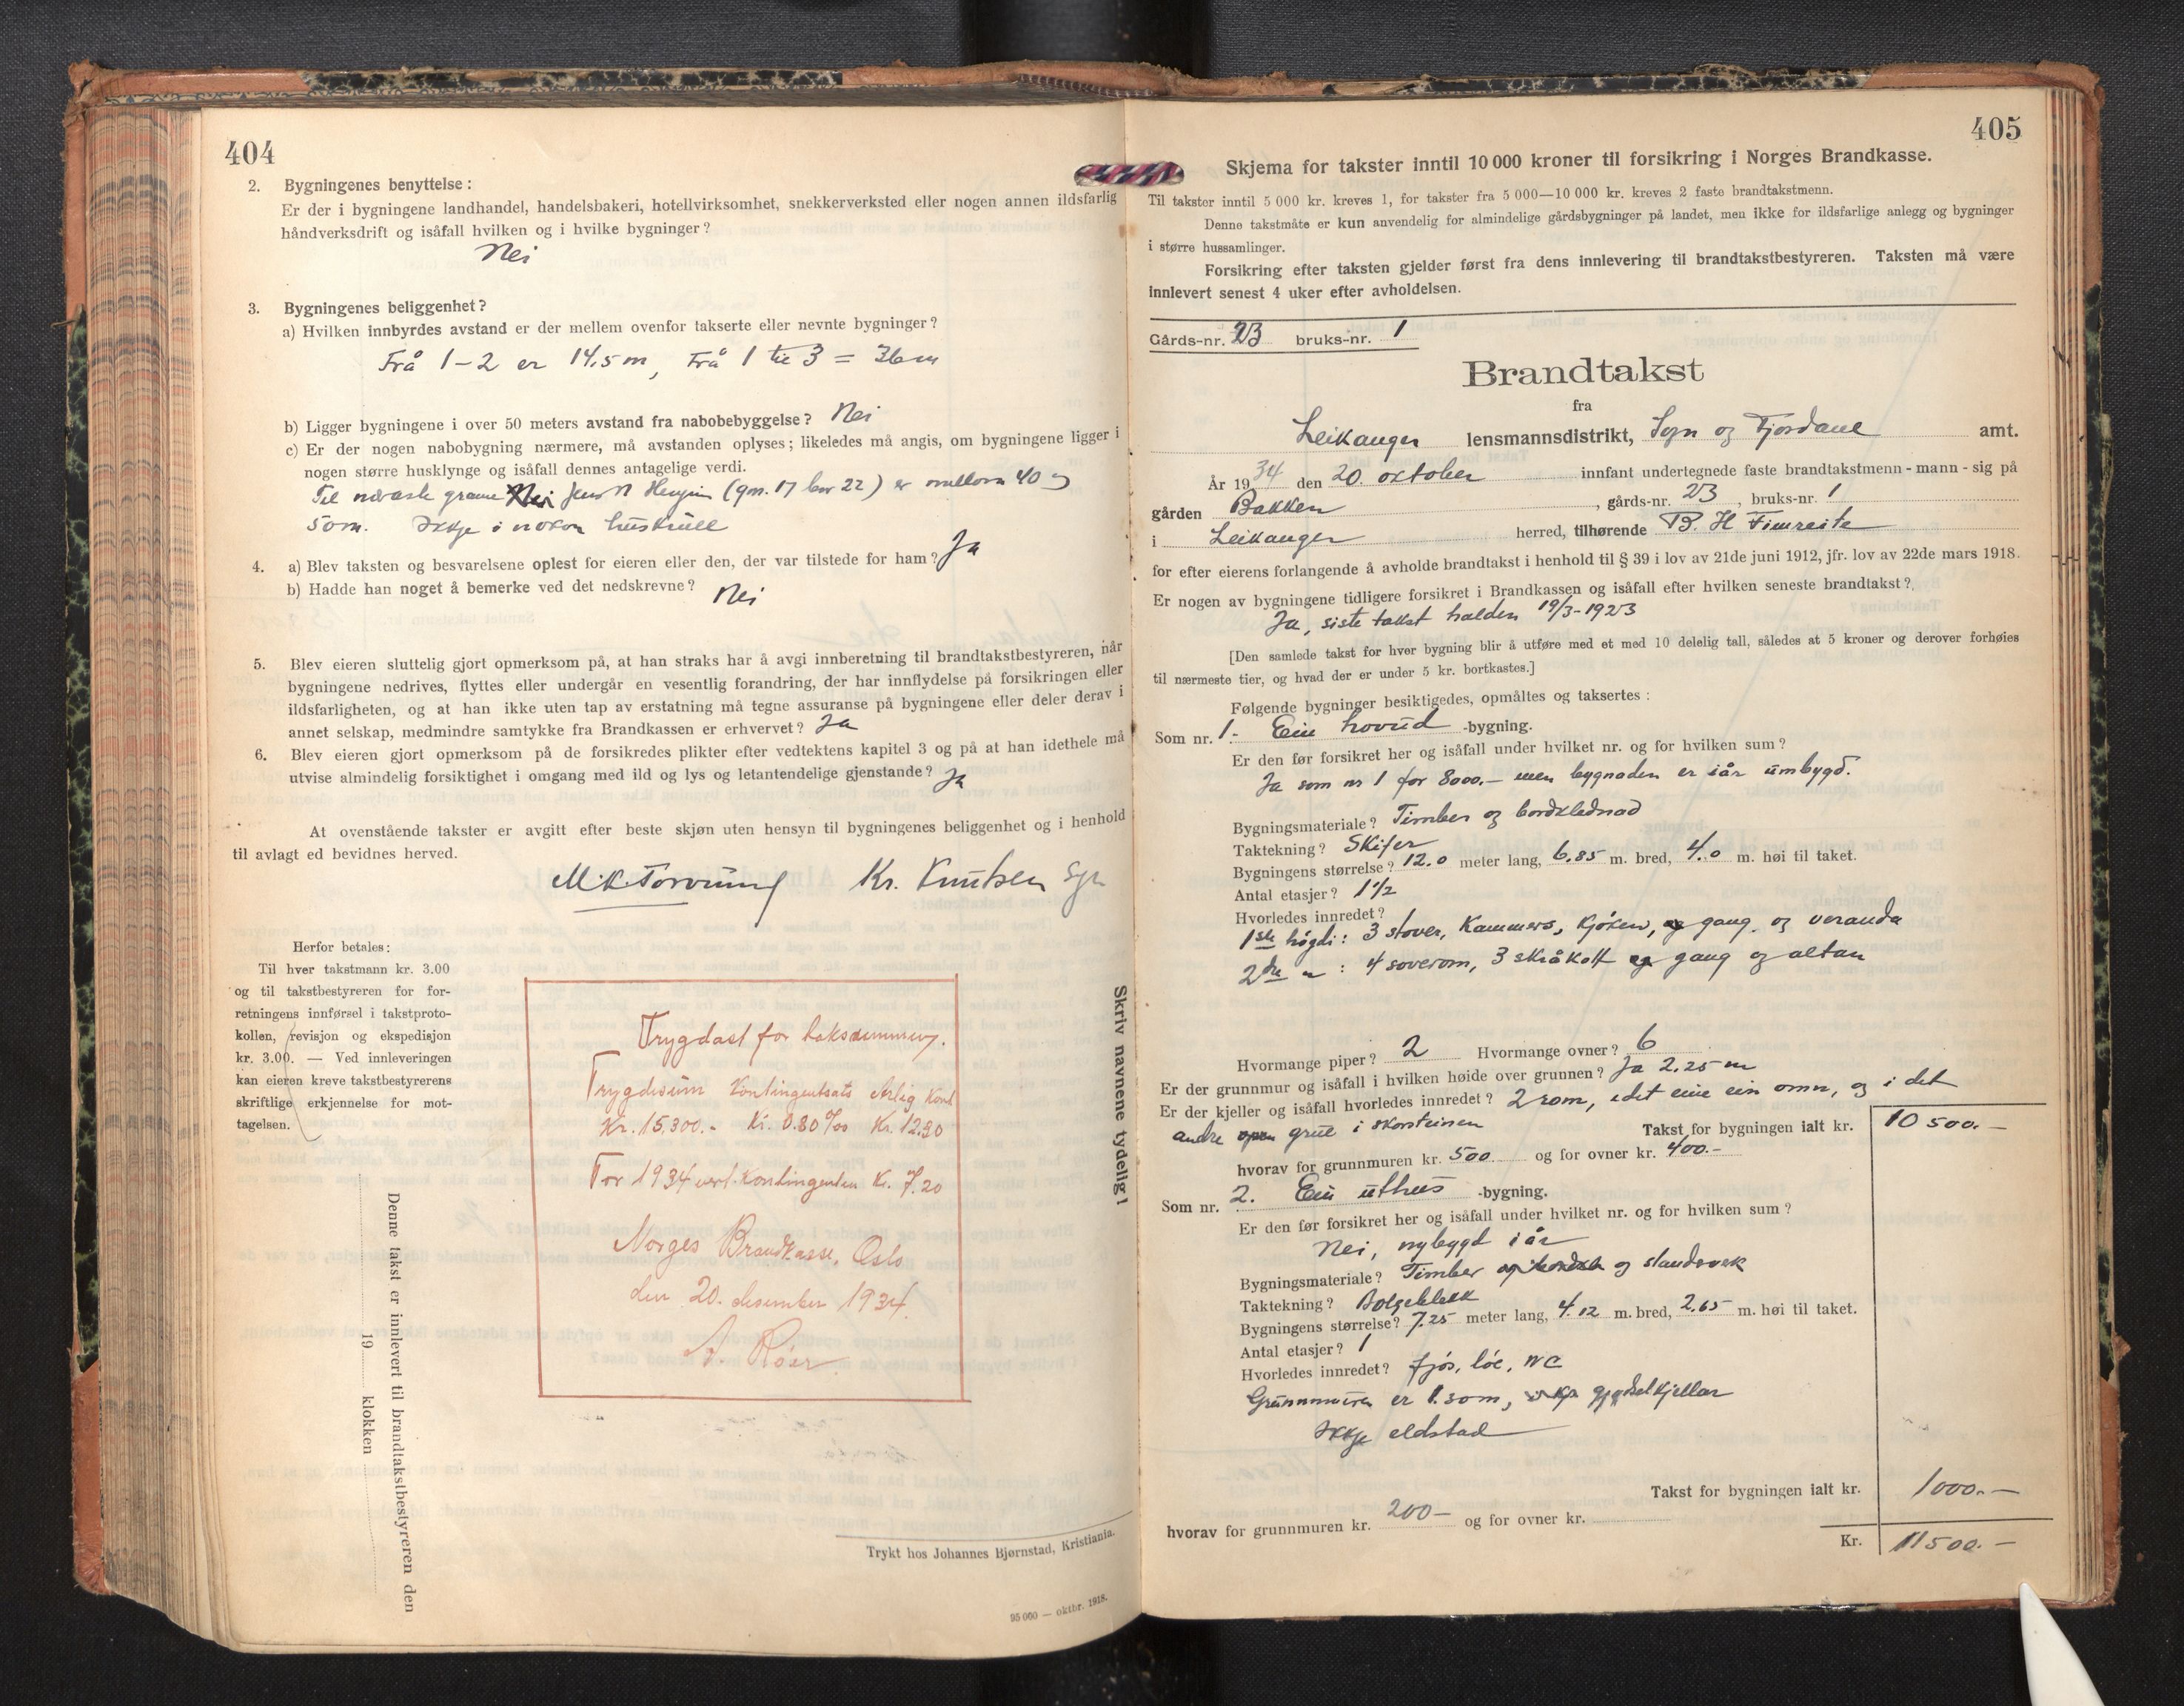 404
2. Bygningenes benyttelse:
Er der i bygningene landhandel, handelsbakeri, hotellvirksomhet, snekkerverksted eller nogen annen ildsfarlig
håndverksdrift og isåfall hvilken og i hvilke bygninger?
Nei
3. Bygningenes beliggenhet?
a) Hvilken innbyrdes avstand er der mellem ovenfor takserte eller nevnte bygninger?
Frå 1-2 er 14,5 m, Frå 1 til 3 = 36m
b) Ligger bygningene i over 50 meters avstand fra nabobebyggelse? Nei
c) Er der nogen nabobygning nærmere, må avstanden oplyses; likeledes må angis, om bygningene ligger i
nogen større husklynge og isåfall dennes antagelige verdi.
Til næraste granne Jens N (gnr. 17 bnr 22) er millom 40 og
50m. Ikkje i nokon huskrull
4. a) Blev taksten og besvarelsene oplest for eieren eller den, der var tilstede for ham? Ja
b) Hadde han noget å bemerke ved det nedskrevne? Nei
5. Blev eieren sluttelig gjort opmerksom på, at han straks har å avgi innberetning til brandtakstbestyreren, når
bygningene nedrives, flyttes eller undergår en vesentlig forandring, der har innflydelse på forsikringen eller
ildsfarligheten, og at han ikke uten tap av erstatning må tegne assuranse på bygningene eller deler derav i
annet selskap, medmindre samtykke fra Brandkassen er erhvervet? Ja
6. Blev eieren gjort opmerksom på de forsikredes plikter efter vedtektens kapitel 3 og på at han idethele må
utvise almindelig forsiktighet i omgang med ild og lys og letantendelige gjenstande? Ja
At ovenstående takster er avgitt efter beste skjøn uten hensyn til bygningenes beliggenhet og i henhold
til avlagt ed bevidnes herved.
Kr. Knutsen
Herfor betales:
Til hver takstmann kr. 3.00
og til takstbestyreren for for-
retningens innførsel i takstproto-
kollen, revisjon og ekspedisjon
kr. 3.00. — Ved innleveringen
kan eieren kreve takstbestyrerens
skriftlige erkjennelse for mot-
tagelsen.
Trygdast for taksummen.
Trygdesum Kontingentsats Årlig Kont
Kr. 15,300.- Kr. 0.80 ‰ Kr. 12.30
For 1934 vert kontingenten Kr. 7.20
Norges Brandkasse, Oslo
den 20. desember 1934.
Denne takst er innlevert til brandtakstbestyreren den
19 klokken
Skriv navnene tydelig!
Trykt hos Johannes Bjørnstad, Kristiania.
95 000 — oktbr. 1918.
405
Skjema for takster inntil 10 000 kroner til forsikring i Norges Brandkasse.
Til takster inntil 5 000 kr. kreves 1, for takster fra 5 000—10 000 kr. kreves 2 faste brandtakstmenn.
Denne takstmåte er kun anvendelig for almindelige gårdsbygninger på landet, men ikke for ildsfarlige anlegg og bygninger
i større hussamlinger.
Forsikring efter taksten gjelder først fra dens innlevering til brandtakstbestyreren. Taksten må være
innlevert senest 4 uker efter avholdelsen.
Gårds-nr. 23 bruks-nr. 1
Brandtakst
fra
Leikanger lensmannsdistrikt, Sogn og Fjordane amt.
År 1934 den 20. oktober innfant undertegnede faste brandtakstmenn - mann - sig på
gården Bakken, gårds-nr. 23, bruks-nr. 1
i Leikanger herred, tilhørende B. H Fimreite
for efter eierens forlangende å avholde brandtakst i henhold til § 39 i lov av 21de juni 1912, jfr. lov av 22de mars 1918.
Er nogen av bygningene tidligere forsikret i Brandkassen og isåfall efter hvilken seneste brandtakst?
Ja, siste takst halden 19/3-1923
[Den samlede takst for hver bygning blir å utføre med et med 10 delelig tall, således at 5 kroner og derover forhøies
til nærmeste tier, og hvad der er under 5 kr. bortkastes.]
Følgende bygninger besiktigedes, opmåltes og taksertes:
Som nr. 1. Ein hovud -bygning.
Er den før forsikret her og isåfall under hvilket nr. og for hvilken sum?
Ja som nr 1 for 8000.— men bygnaden er iår umbygd.
Bygningsmateriale? Timber og bordklednad
Taktekning? Skifer
Bygningens størrelse? 12.0 meter lang, 6.85 m. bred, 4.0 m. høi til taket.
Antal etasjer? 1½
Hvorledes innredet?
1ste høgdi: 3 stover, Kammers, Kjøken, gang. og veranda
2dre " : 4 soverom, 3 skråkott gang og altan
Hvormange piper? 2 Hvormange ovner? 6
Er der grunnmur og isåfall i hvilken høide over grunnen? Ja 2.25 m
Er der kjeller og isåfall hvorledes innredet? 2 rom, idet eine ein omn, og i det
andre grue i skorsteinen Takst for bygningen ialt kr. 10 500.—
hvorav for grunnmuren kr. 500 og for ovner kr. 400.—
Som nr. 2. Ein uthus -bygning.
Er den før forsikret her og isåfall under hvilket nr. og for hvilken sum?
Nei, nybygd iår
Bygningsmateriale? Timber og standverk
Taktekning? Bølgeblekk
Bygningens størrelse? 7.25 meter lang, 4.12 m. bred, 2.65 m. høi til taket.
Antal etasjer? 1
Hvorledes innredet? fjós, lóe, WC
Grunnmuren er 1.50m, gjødselkjellar
Ikkje eldstad
Takst for bygningen ialt kr. 1000.—
hvorav for grunnmuren kr. 200— og for ovner kr.
Kr. 11500.—